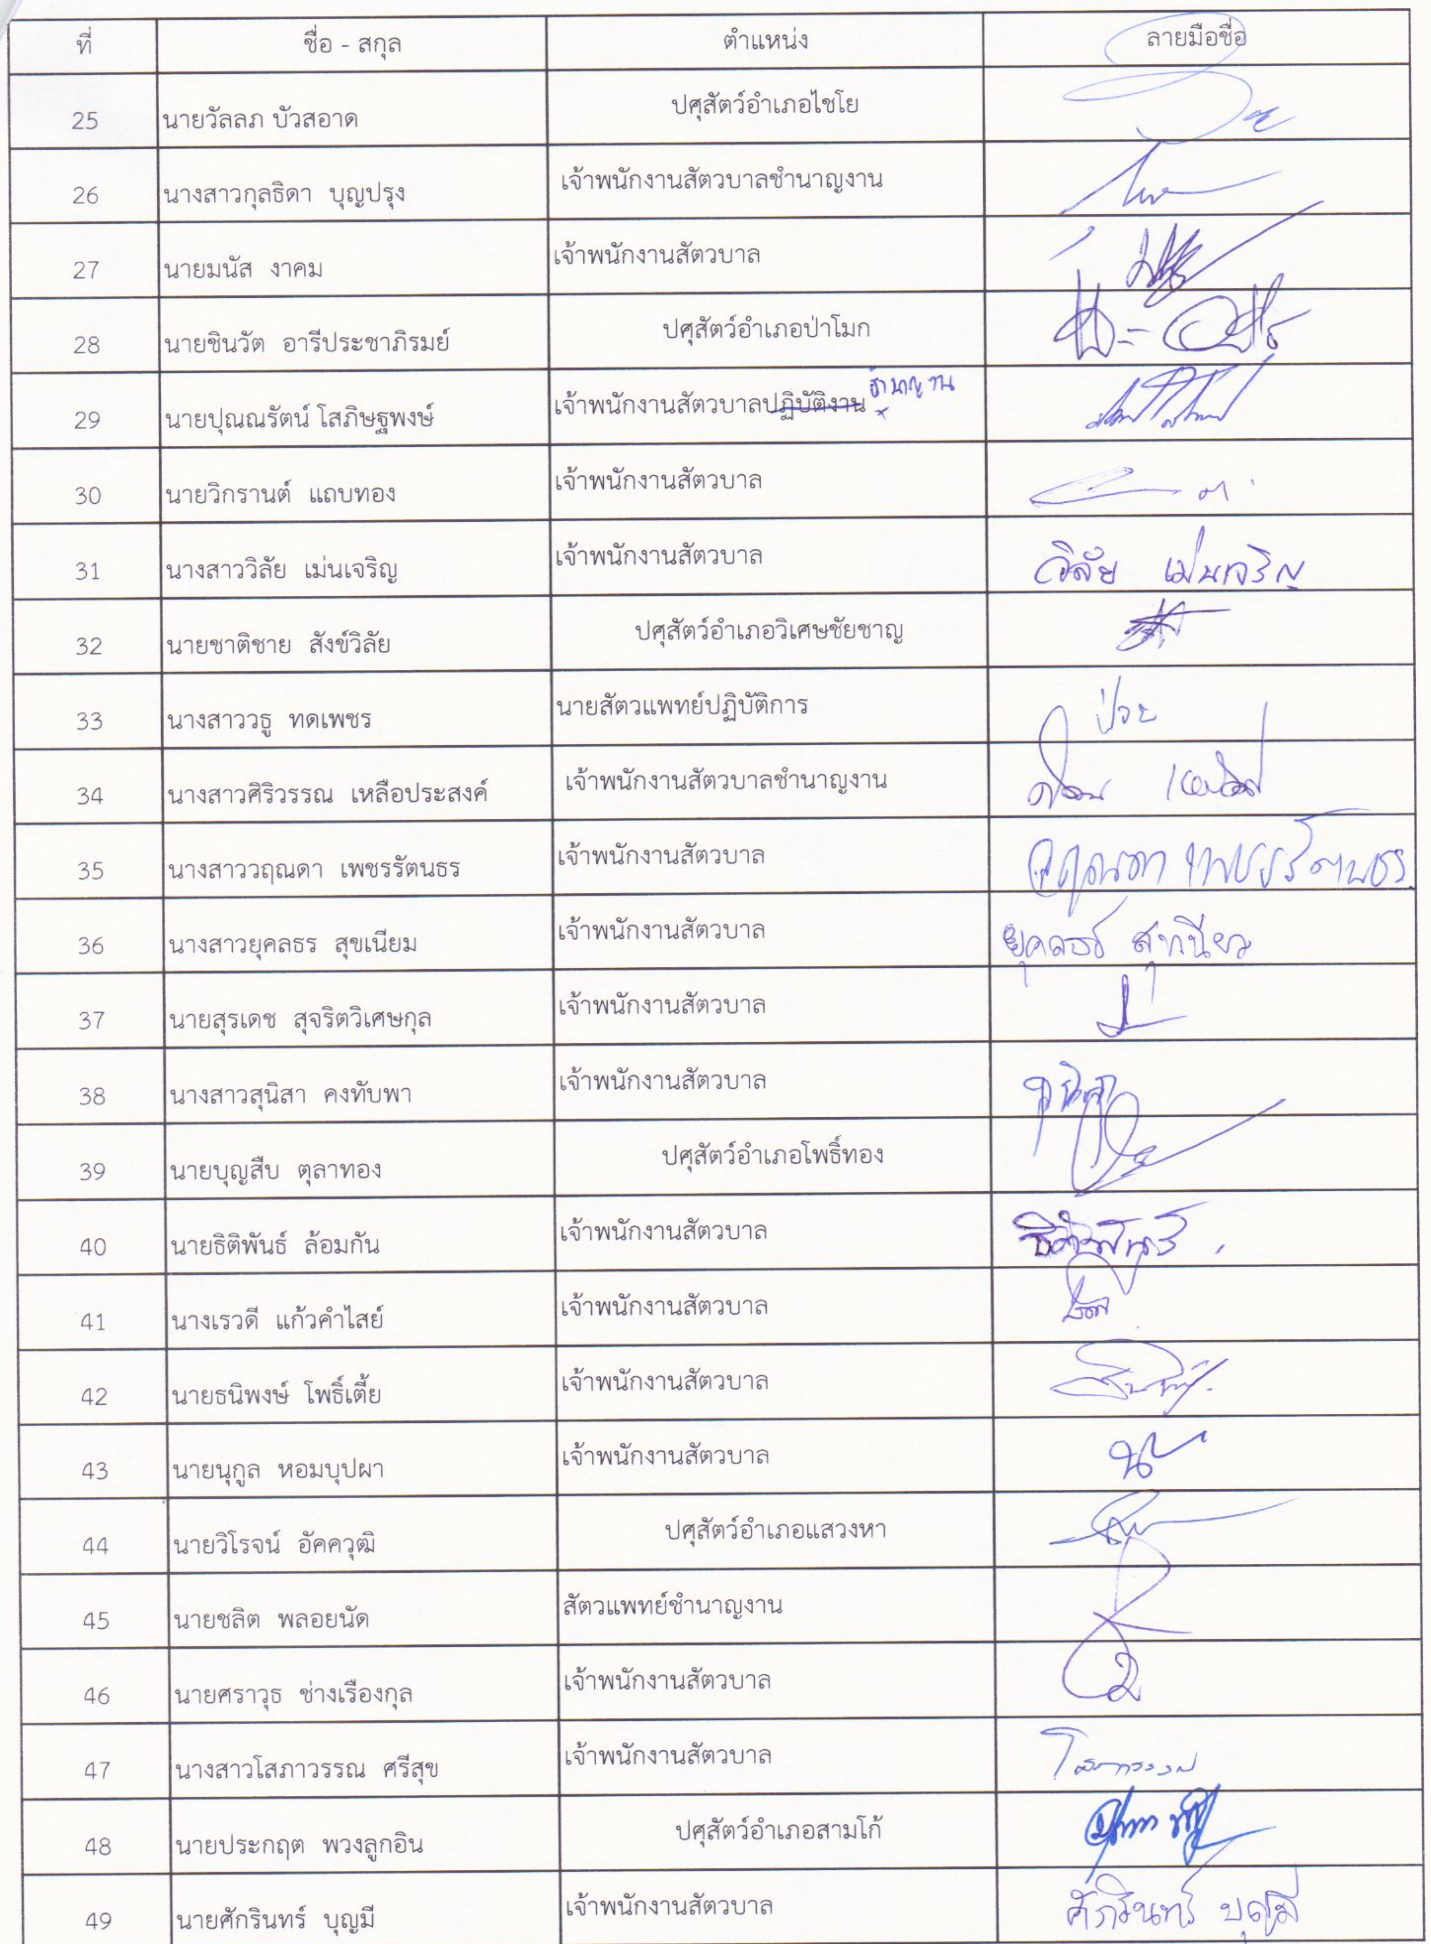 ที่ ชื่อ - สกุล ตำแหน่ง ลายมือชื่อ
25 นายวัลลภ บัวสอาด ปศุสัตว์อำเภอไชโย
26 นางสาวกุลธิดา บุญปรุง เจ้าพนักงานสัตวบาลชำนาญงาน
27 นายมนัส งาคม เจ้าพนักงานสัตวบาล
28 นายชินวัต อารีประชาภิรมย์ ปศุสัตว์อำเภอป่าโมก
29 นายปุณณรัตน์ โสภิษฐพงษ์ เจ้าพนักงานสัตวบาลปฏิบัติงาน ชำนาญงาน
30 นายวิกรานต์ แถบทอง เจ้าพนักงานสัตวบาล
31 นางสาววิลัย เม่นเจริญ เจ้าพนักงานสัตวบาล วิลัย เม่นเจริญ
32 นายชาติชาย สังข์วิลัย ปศุสัตว์อำเภอวิเศษชัยชาญ
33 นางสาววธู ทดเพชร นายสัตวแพทย์ปฏิบัติการ ป่วย
34 นางสาวศิริวรรณ เหลือประสงค์ เจ้าพนักงานสัตวบาลชำนาญงาน
35 นางสาววฤณดา เพชรรัตนธร เจ้าพนักงานสัตวบาล วฤณดา เพชรรัตนธร
36 นางสาวยุคลธร สุขเนียม เจ้าพนักงานสัตวบาล
37 นายสุรเดช สุจริตวิเศษกุล เจ้าพนักงานสัตวบาล
38 นางสาวสุนิสา คงทับพา เจ้าพนักงานสัตวบาล
39 นายบุญสืบ ตุลาทอง ปศุสัตว์อำเภอโพธิ์ทอง
40 นายธิติพันธ์ ล้อมกัน เจ้าพนักงานสัตวบาล
41 นางเรวดี แก้วคำไสย์ เจ้าพนักงานสัตวบาล
42 นายธนิพงษ์ โพธิ์เตี้ย เจ้าพนักงานสัตวบาล
43 นายนุกูล หอมบุปผา เจ้าพนักงานสัตวบาล
44 นายวิโรจน์ อัคควุฒิ ปศุสัตว์อำเภอแสวงหา
45 นายชลิต พลอยนัด สัตวแพทย์ชำนาญงาน
46 นายศราวุธ ช่างเรืองกุล เจ้าพนักงานสัตวบาล
47 นางสาวโสภาวรรณ ศรีสุข เจ้าพนักงานสัตวบาล โสภาวรรณ
48 นายประกฤต พวงลูกอิน ปศุสัตว์อำเภอสามโก้
49 นายศักรินทร์ บุญมี เจ้าพนักงานสัตวบาล ศักรินทร์ บุญมี